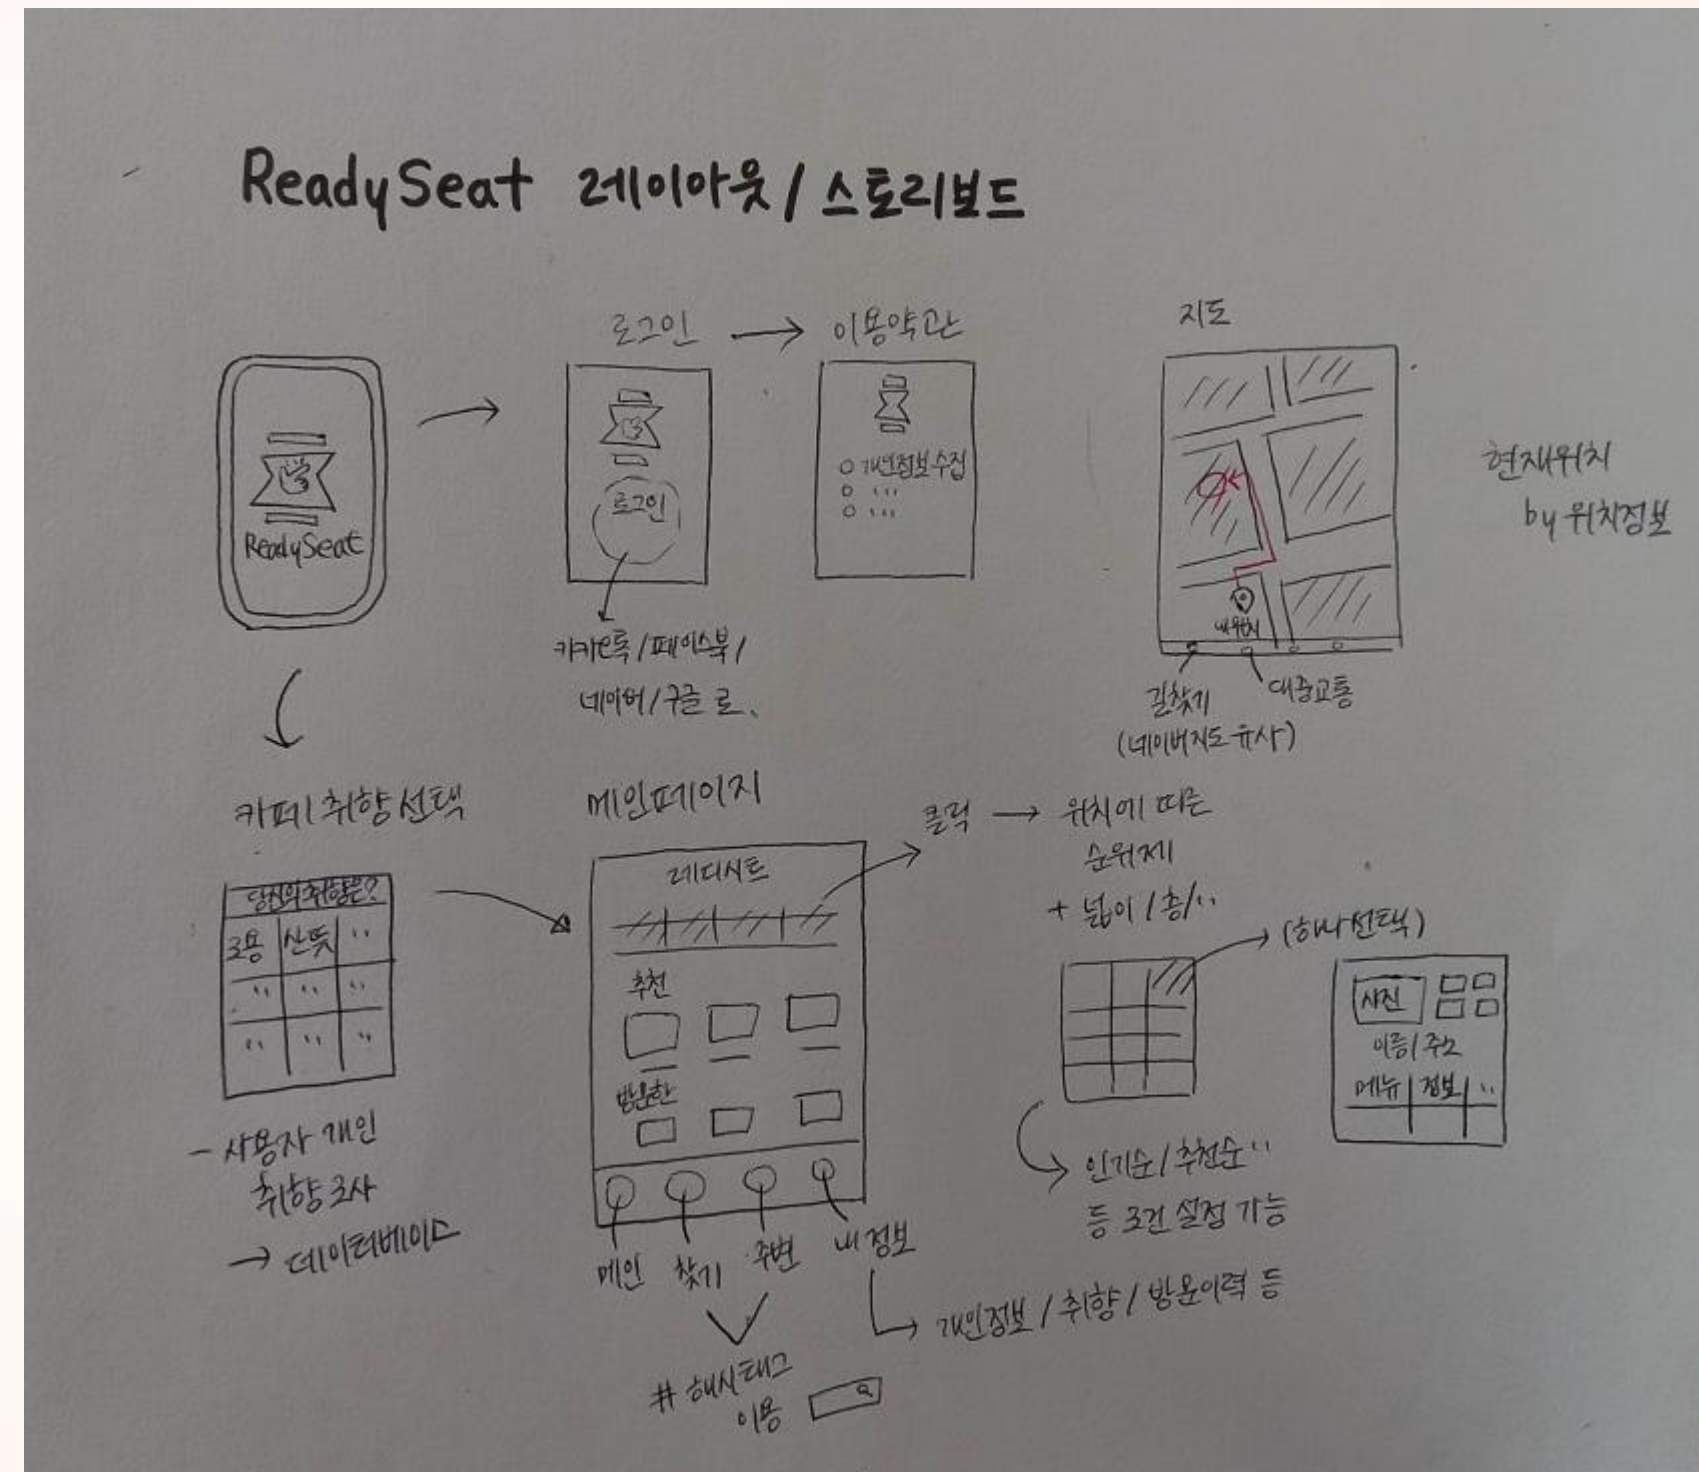 ReadySeat 레이아웃 / 스토리보드
로그인 → 이용약관
지도
ReadySeat
로그인
카카오톡 / 페이스북 /
네이버 / 구글 로.
○ 개인정보수집
○ ...
○ ...
내위치
길찾기
(네이버지도 유사)
대중교통
현재위치
by 위치정보
카페 취향 선택
당신의 취향은?
조용 산뜻 "
" " "
" " "
- 사용자 개인
취향 조사
→ 데이터베이스
메인페이지
레디시트
추천
방문한
메인 찾기 주변 내 정보
# 해시태그
이용
→ 개인정보 / 취향 / 방문이력 등
클릭 → 위치에 따른
순위제
+ 넓이 / 층 / ..
→ (하나 선택)
→ 인기순 / 추천순 ..
등 조건 설정 가능
사진
이름 / 주소
메뉴 정보 ..